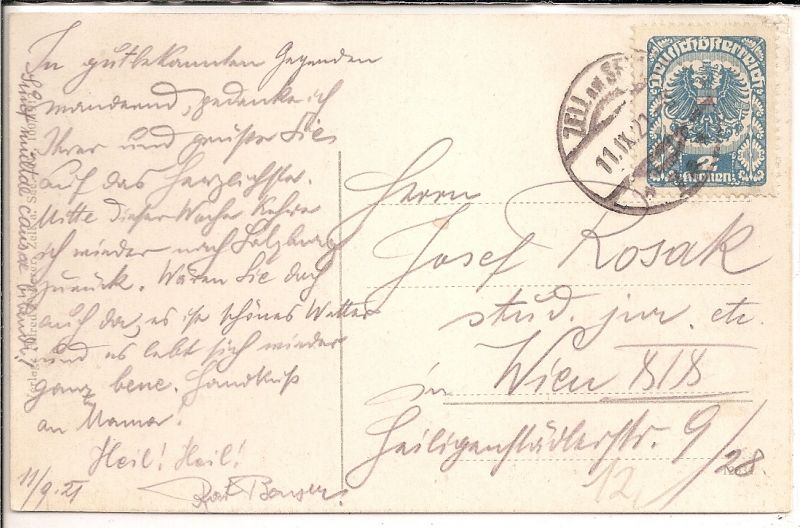 In gutbekannten Gegenden
wandernd, gedenke ich
Ihrer und grüße Sie
auf das Herzlichste.
Mitte dieser Woche kehre
ich wieder nach Salzburg
zurück. Wären Sie doch
auch da, es ist schönes Wetter
und es lebt sich wieder
ganz bene. Handkuß
an Mama!
Heil! Heil!
11/9.21
Sunt multae causae bibendi!
Deutschösterreich
2
Kronen
ZELL am SEE
11.IX.21
Herrn
Josef Kosak
stud. jur. etc.
in Wien XIX
Heiligenstädterstr. 9/28.
12.